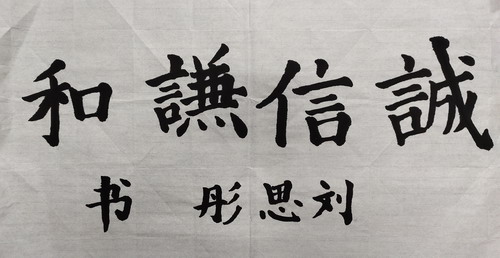 誠信謙和
刘思彤 书